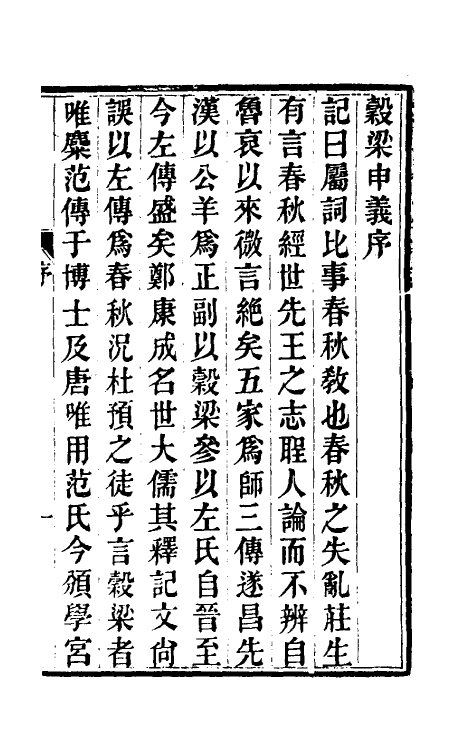 穀梁申義序
記曰屬詞比事春秋敎也春秋之失亂莊生
有言春秋經世先王之志聖人論而不辨自
魯哀以來微言絕矣五家爲師三傳遂昌先
漢以公羊爲正副以穀梁參以左氏自晉至
今左傳盛矣鄭康成名世大儒其釋記文尙
誤以左傳爲春秋況杜預之徒乎言穀梁者
唯麋范傳于博士及唐唯用范氏今頒學宮
序
一